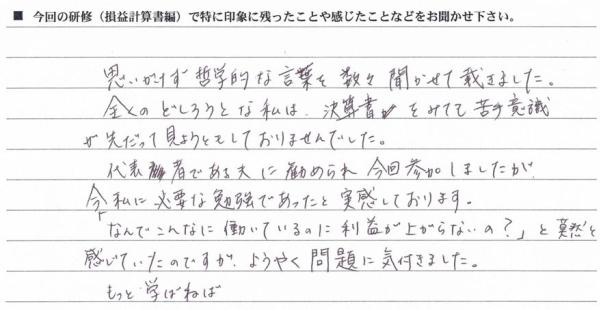 ■ 今回の研修（損益計算書編）で特に印象に残ったことや感じたことなどをお聞かせ下さい。
思いがけず哲学的な言葉を数々聞かせて戴きました。
全くのどしろうとな私は、決算書をみても苦手意識
が先だって見ようともしておりませんでした。
代表者である夫に勧められ今回参加しましたが、
今私に必要な勉強であったと実感しております。
「なんでこんなに働いているのに利益が上がらないの？」と莫然と
感じていたのですが、ようやく問題に気付きました。
もっと学ばねば